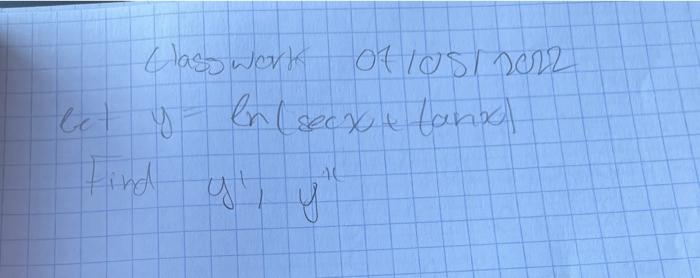 Classwork 07/05/2022
let y = ln(secx + tanx)
Find y', y''